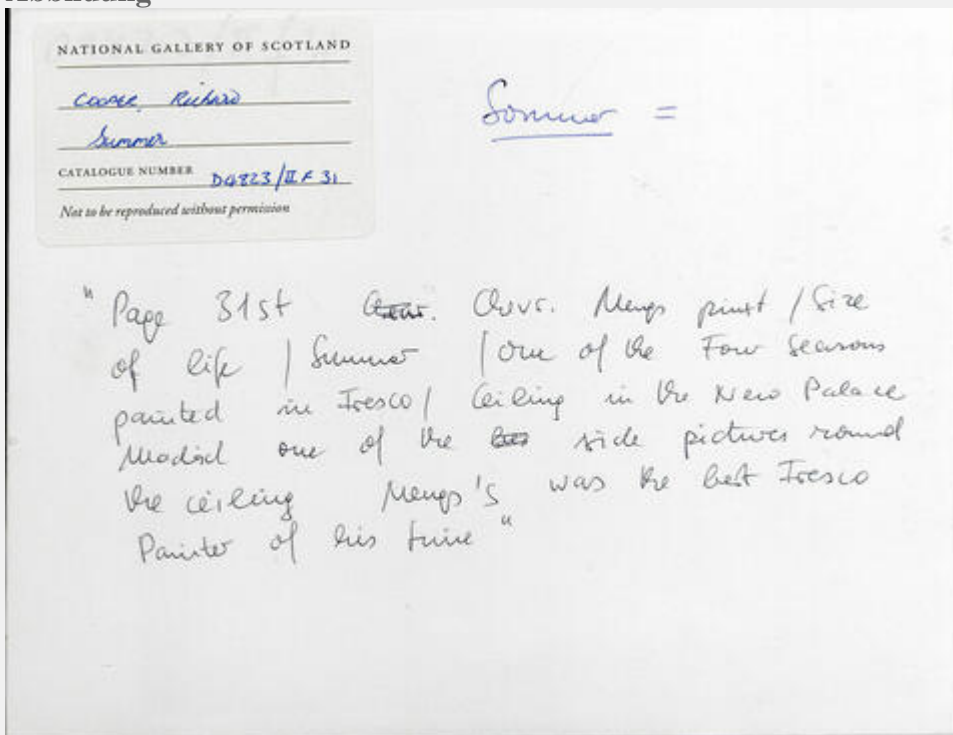 NATIONAL GALLERY OF SCOTLAND
COOPER, Richard
Summer
CATALOGUE NUMBER D4823/II F 31
Not to be reproduced without permission
Sommer =
"Page 31st Cavr. Mengs pinxt / Size
of life / Summer / one of the Four Seasons
painted in Fresco / Ceiling in the New Palace
Madrid one of the side pictures round
the ceiling Mengs's was the best Fresco
Painter of his time"